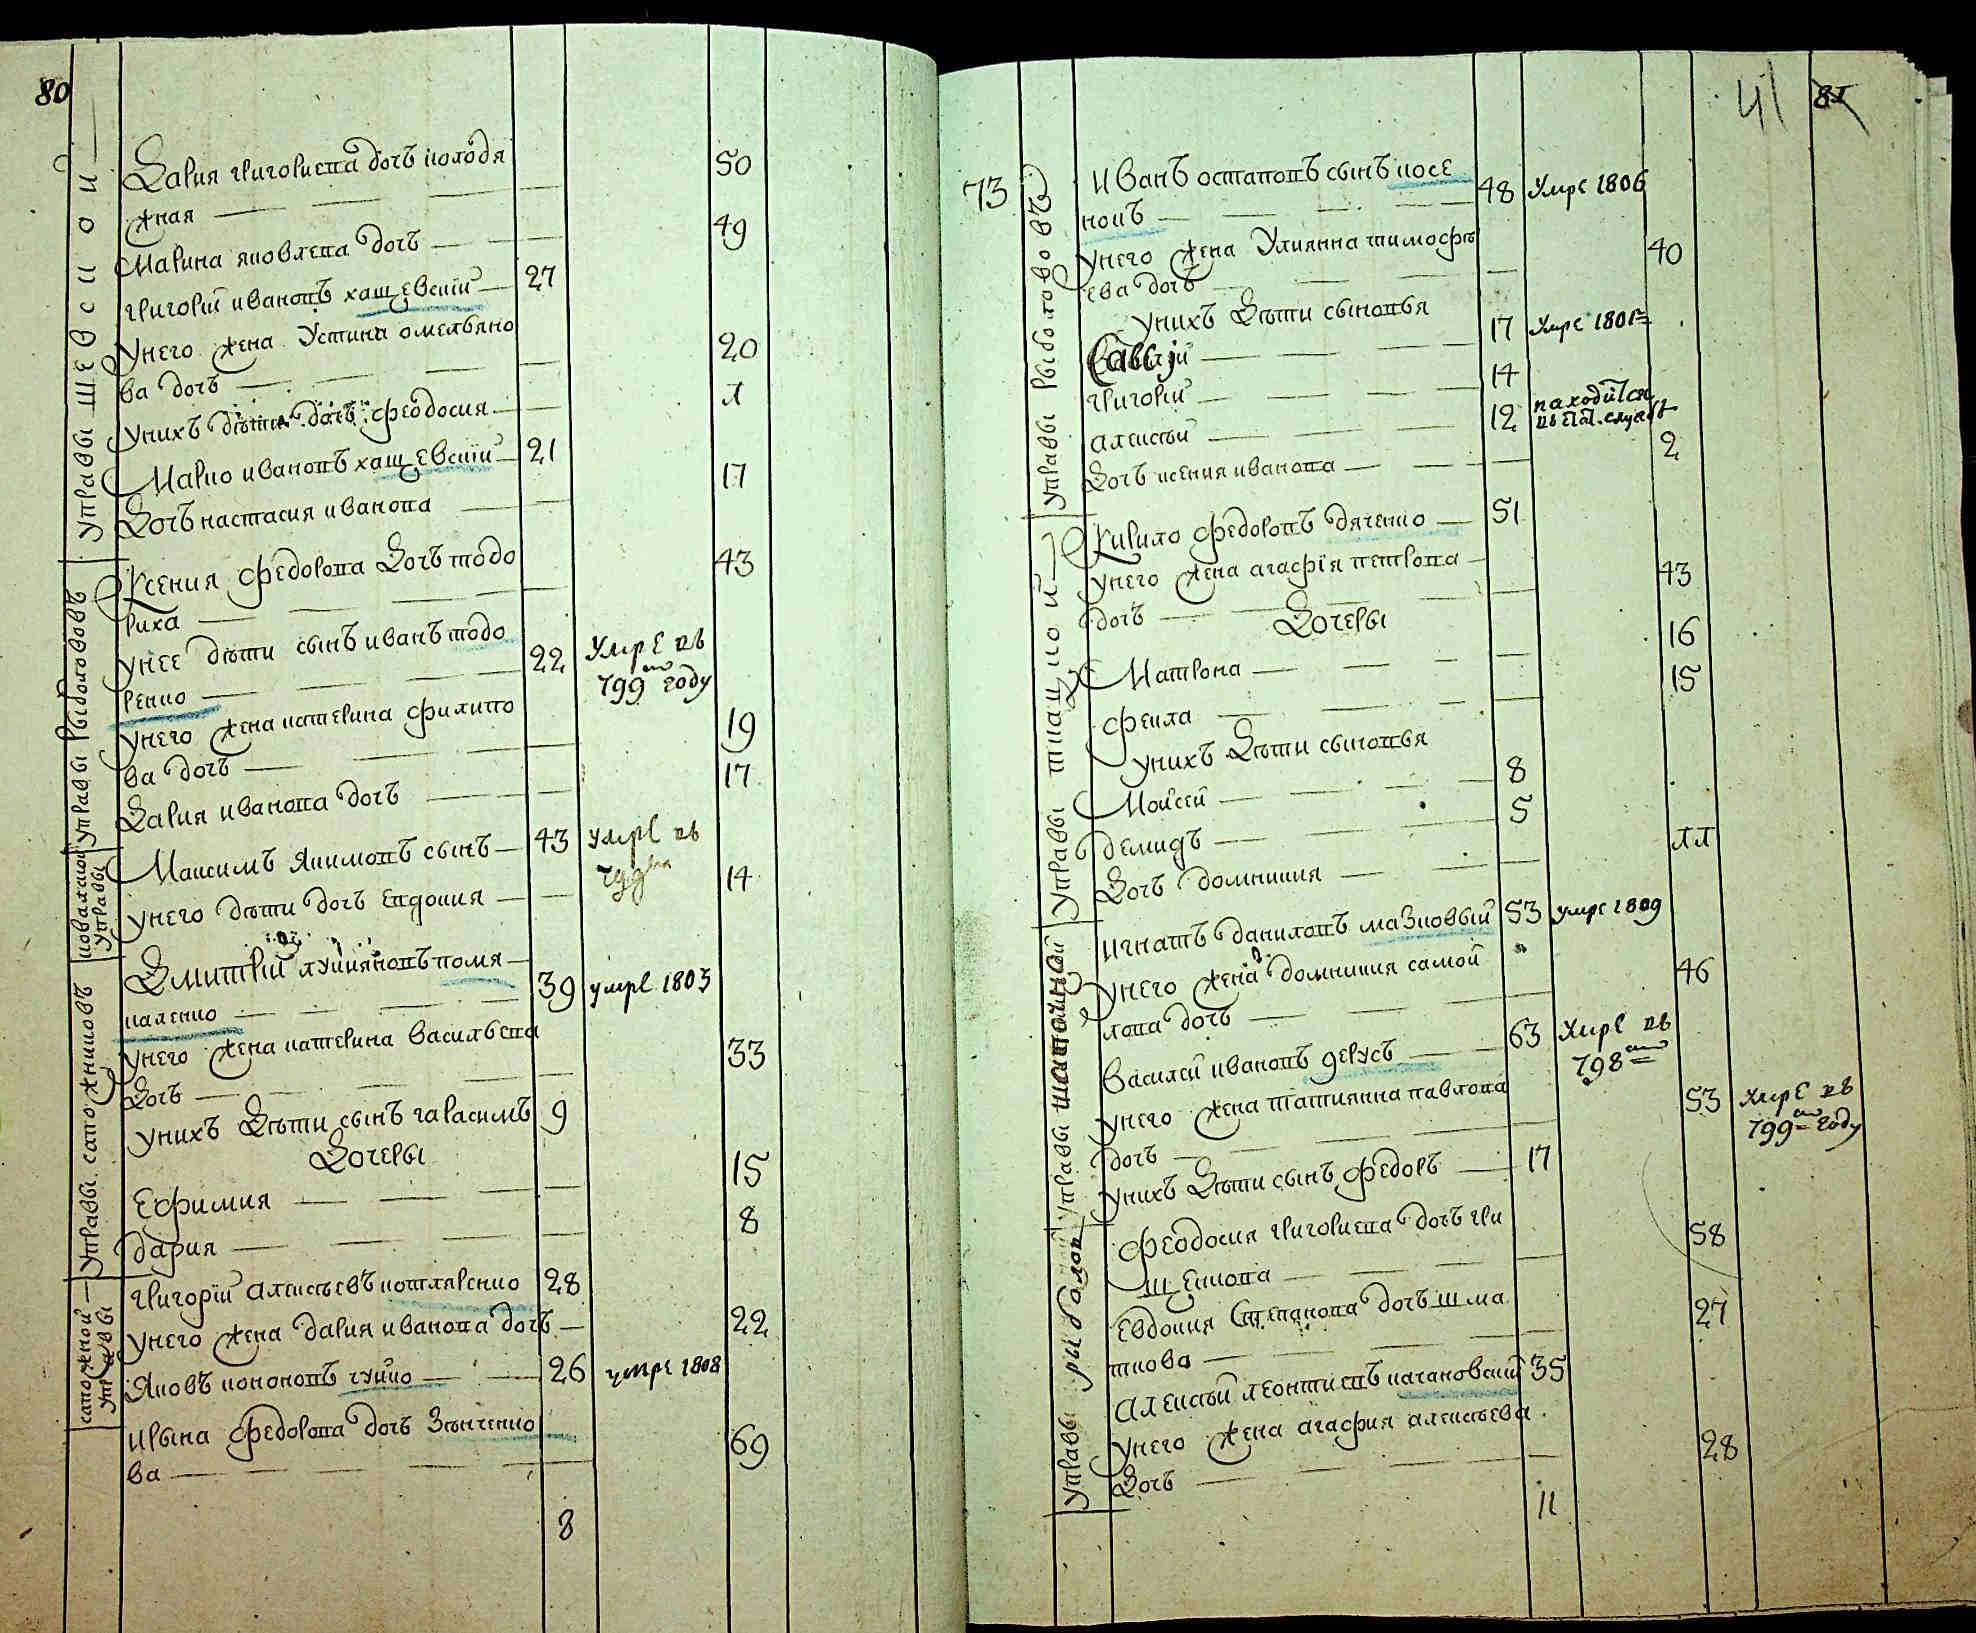 80
управы шевской
Дария григориева дочь колодя
жная 50
Марина яковлева дочь 49
григорий ивановъ хащевский 27
унего жена Устина омельяно
ва дочь 20
унихъ дѣти дочь феодосия 1
Марко ивановъ хащевский 21
Дочь настасия иванова 17
управы рыболововъ
Ксения федорова дочь тодо
риха 43
унее дѣти сынъ иванъ тодо
ренко 22 умре въ 799 году
унего жена катерина филипо
ва дочь 19
Дария иванова дочь 17
ковалской управы
Максимъ якимовъ сынъ 43 умре въ
унего дѣти дочь евдокия 14
управы сапожниковъ
Дмитрий лукияновъ помя
каленко 39 умре 1803
унего жена катерина васильева
Дочь 33
унихъ Дѣти сынъ гарасимъ 9
Дочери
Ефимия 15
дария 8
сапожной управы
григорий алексѣевъ котляренко 28
унего жена дария иванова дочь 22
Яковъ кононовъ чуйко 26 умре 1808
ирына федорова дочь Зѣнченко
ва 69
8
41 81
73
управы рыболововъ
иванъ остаповъ сынъ косе
нокъ 48 умре 1806
унего жена Улиянна тимофѣ
ева дочь 40
унихъ Дѣти сыновья
Савѣй 17 умре 1801
григорий 14
алексѣй 12 находится
Дочь ксения иванова 2
управы ткацкой
Кирило федоровъ дяченко 51
унего жена агафия петрова
дочь 43
Дочеры
Матрона 16
фекла 15
унихъ Дѣти сыновья
Моисей 8
демидъ 5
Дочь домникия
управы шаповалной
игнатъ даниловъ мазковый 53 умре 1809
унего жена домникия самой
лова дочь 46
василей ивановъ дерусъ 63 умре въ 798
унего жена татиянна павлова
дочь 53 умре въ 799 году
унихъ Дѣти сынъ федоръ 17
управы рыболов
феодосия григориева дочь гри
щенкова 58
евдокия степанова дочь шма
ткова 27
алексѣй леонтиевъ качановский 35
унего жена агафия алексѣева
Дочь 28
11